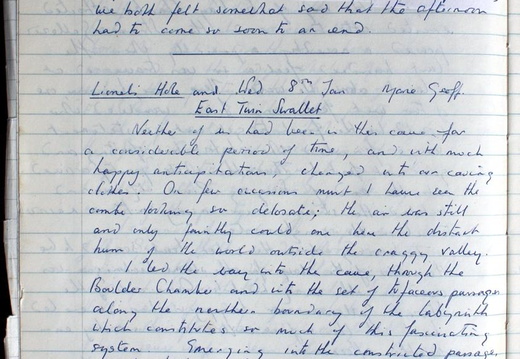 we both felt somewhat sad that the afternoon
had to come so soon to an end.
Lionel's Hole and Wed 8th Jan Marc Geoff.
East Twin Swallet
Neither of us had been in the cave for
a considerable period of time, and with much
happy anticipation, changed into our caving
clothes. On few occasions must I have seen the
combe looking so desolate; the air was still
and only faintly could one hear the distant
hum of the world outside the craggy valley.
I led the way into the cave, through the
Boulder Chamber and into the set of passages
along the northern boundary of the labyrinth
which constitutes so much of this fascinating
system. Emerging into the constricted passages